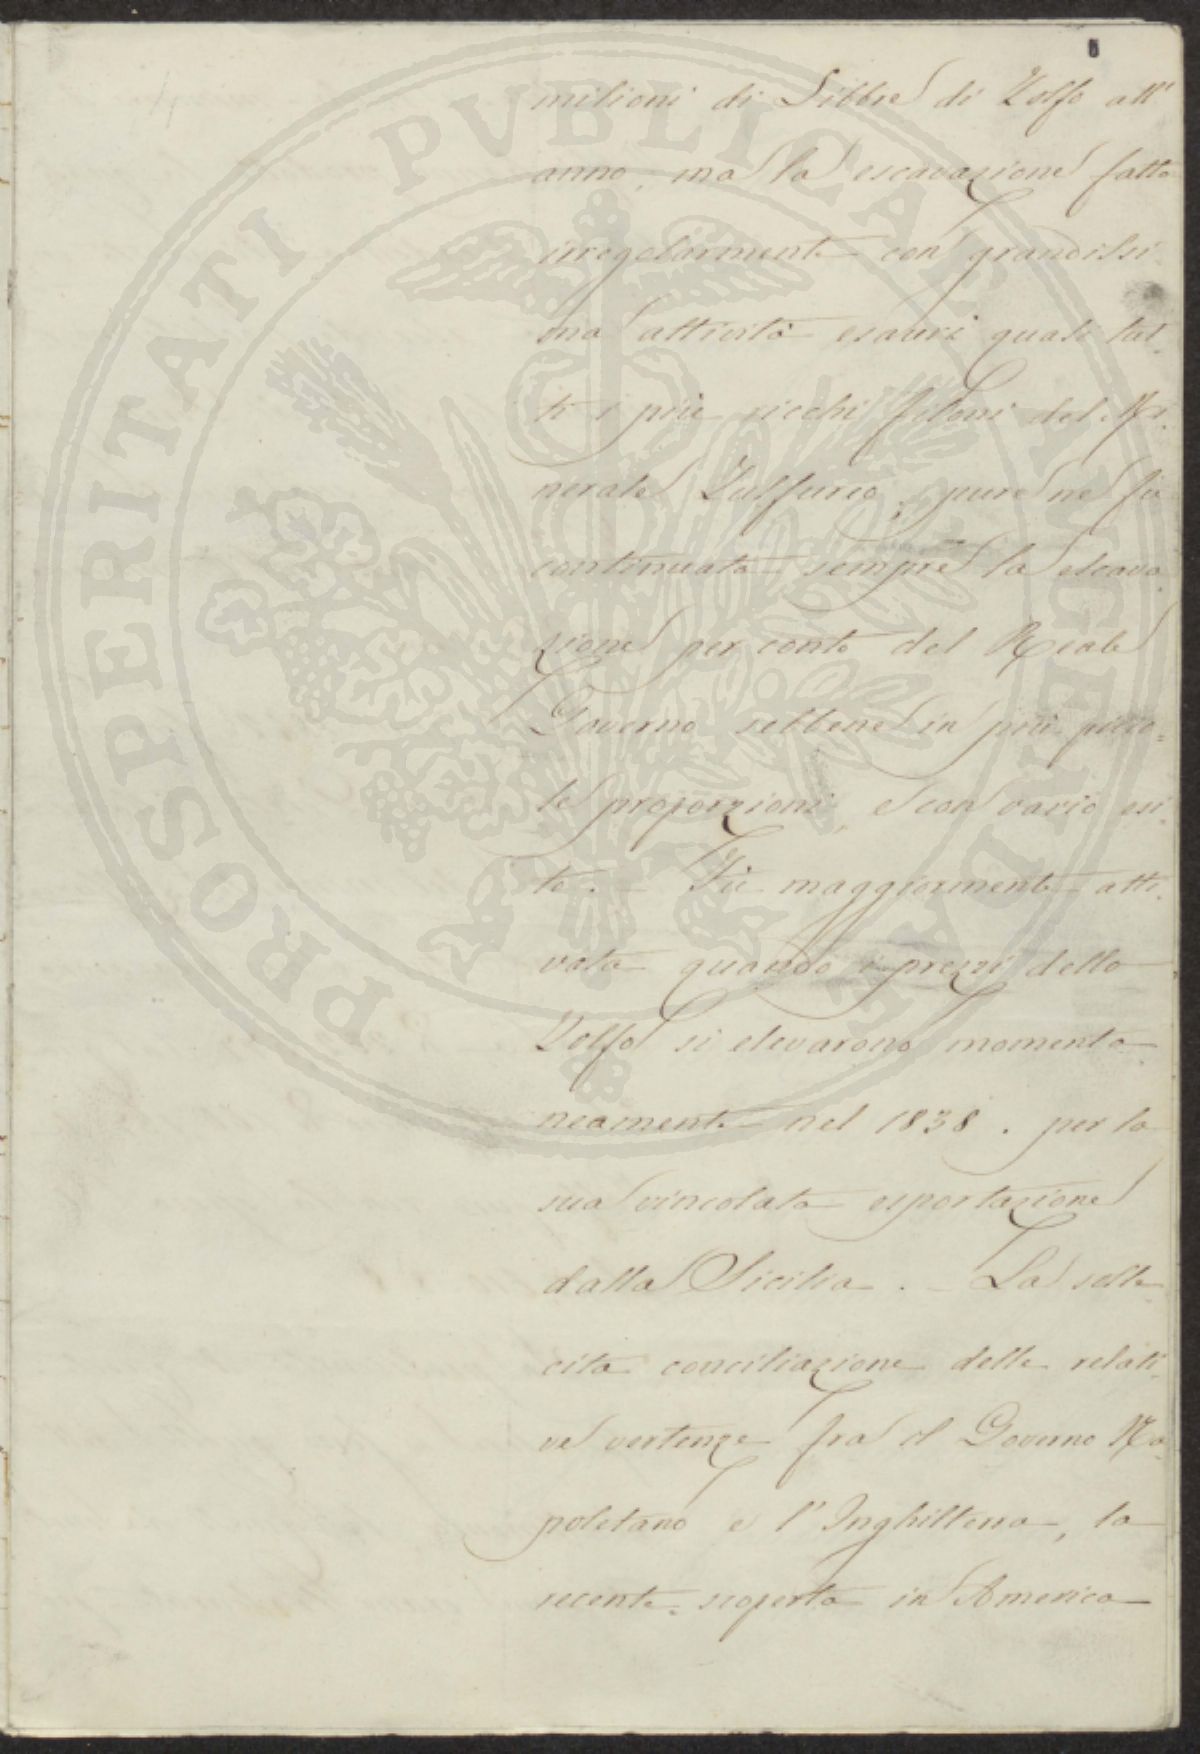 milioni di Libbre di Zolfo all'
anno; ma la escavazione fatta
irregolarmente con grandissi
ma attività esaurì quasi tut-
ti i più ricchi filoni del Mi-
nerale Zulfureo, pure ne fù
continuata sempre la escava
zione per conto del Reale
Governo sebbene in più picco=
le proporzioni, e con vario esi-
to. - Fù maggiormente atti-
vata quando i prezzi dello
Zolfo si elevarono momenta
neamente nel 1838. per la
sua vincolata esportazione
dalla Sicilia. - La solle
cita conciliazione delle relati-
ve vertenze fra il Governo Na-
poletano e l'Inghilterra, la
recente scoperta in America
PROSPERITATI PUBLICAE AUGENDAE